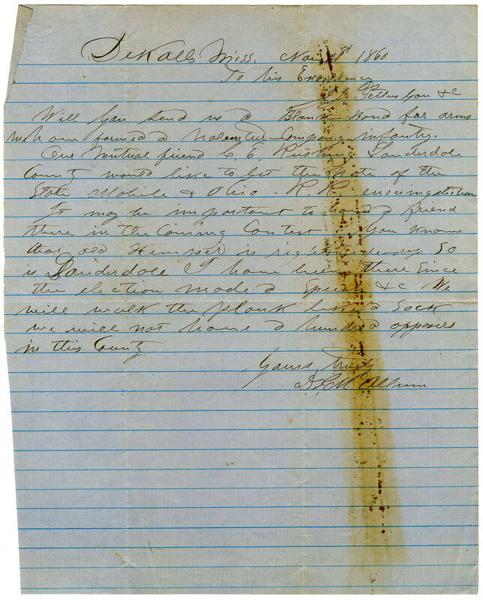 DeKalb Miss. Nov 1860
To his Excellency
Pettus &c
Will you send us a Blank Bond for arms
we have formed a Volunteer Company infantry.
Our mutual friend C. E. Rushing Lauderdale
County would like to get the vote of the
State Mobile & Ohio R. R. ensuing election
It may be important to have a friend
there in the Coming Contest. You know
that old Kemper is right So
is Lauderdale I have been there since
the election made a Speech &c We
will walk the plank like a
we will not have a hundred opposers
in this County
Yours Truly